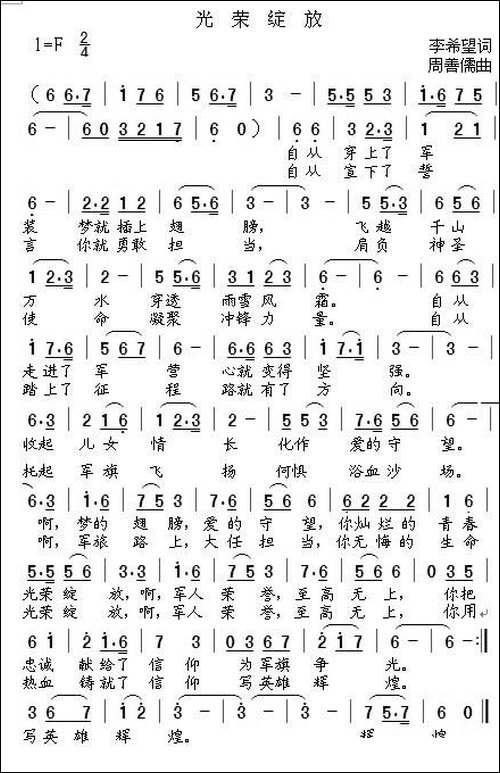 光荣绽放
1=F 2/4
李希望词
周善儒曲
(6 6·7 | i 7 6 | 5 6·7 | 3 - | 5·5 5 3 | i·6 7 5 |
6 - | 6 0 3 2 1 7 | 6 0) | 6 6 | 3 2·3 | 1 2 1 |
自从 穿上了 军
自从 宣下了 誓
6 - | 2·2 1 2 | 6 5·6 | 3 - | 3 - | 3 5·3 | 6 5 6 |
装 梦就插上 翅 膀, 飞越 千山
言 你就勇敢 担 当, 肩负 神圣
1 2·3 | 2 - | 5 5·6 | 3 1 2 3 | 6 - | 6 - | 6 6 3 |
万 水 穿透 雨雪风 霜。 自从
使 命 凝聚 冲锋力 量。 自从
i 7·6 | 5 6 7 | 6 - | 6 6 3 | 2·3 | i 7·i | 3 - | 3 - |
走进了 军 营 心就 变得 坚 强。
踏上了 征 程 路就 有了 方 向。
6·3 | 2 i 6 | 1 2·3 | 2 - | 5 5 3 | 7·6 5 6 | 6 - | 6 - |
收起 儿女 情 长 化作 爱的守 望。
托起 军旗 飞 扬 何惧 浴血沙 场。
6·3 | i·6 | 7 5 3 | 7·6 | 5 6 5 | 6 2 2 2 | i 6 |
啊, 梦的 翅膀, 爱的 守望, 你灿烂的 青春
啊, 军旅 路上, 大任 担当, 你无悔的 生命
5·5 5 6 | 3·3 | 2·3 | 5 6 5 | 7·6 | 5 6 6 | 0 3 5 |
光荣绽 放, 啊, 军人 荣誉, 至高 无上, 你把
光荣绽 放, 啊, 军人 荣誉, 至高 无上, 你用
6 i | 2 i·6 | 7 3 | 0 3 6 7 | 2 i 7 | 6 - | 6 - :|
忠诚 献给了 信仰 为军旗 争 光。
热血 铸就了 信仰 写英雄 辉 煌。
3 6 7 | i 2 | 3 - | 3 - | 3 - | 7 5·7 | 6 0 ‖
写英雄 辉 煌。 辉 煌